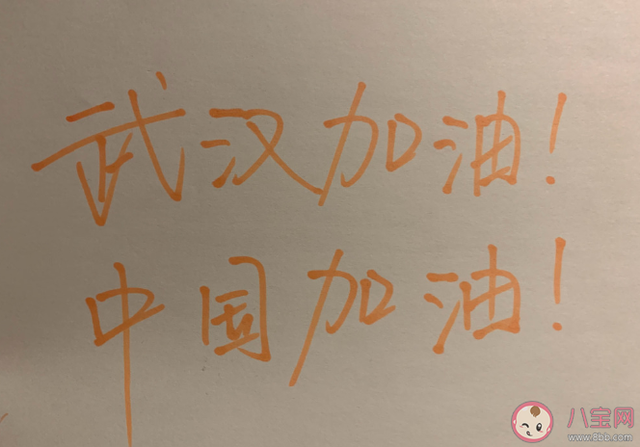 武汉加油!
中国加油!
八宝网
www.8bb.com